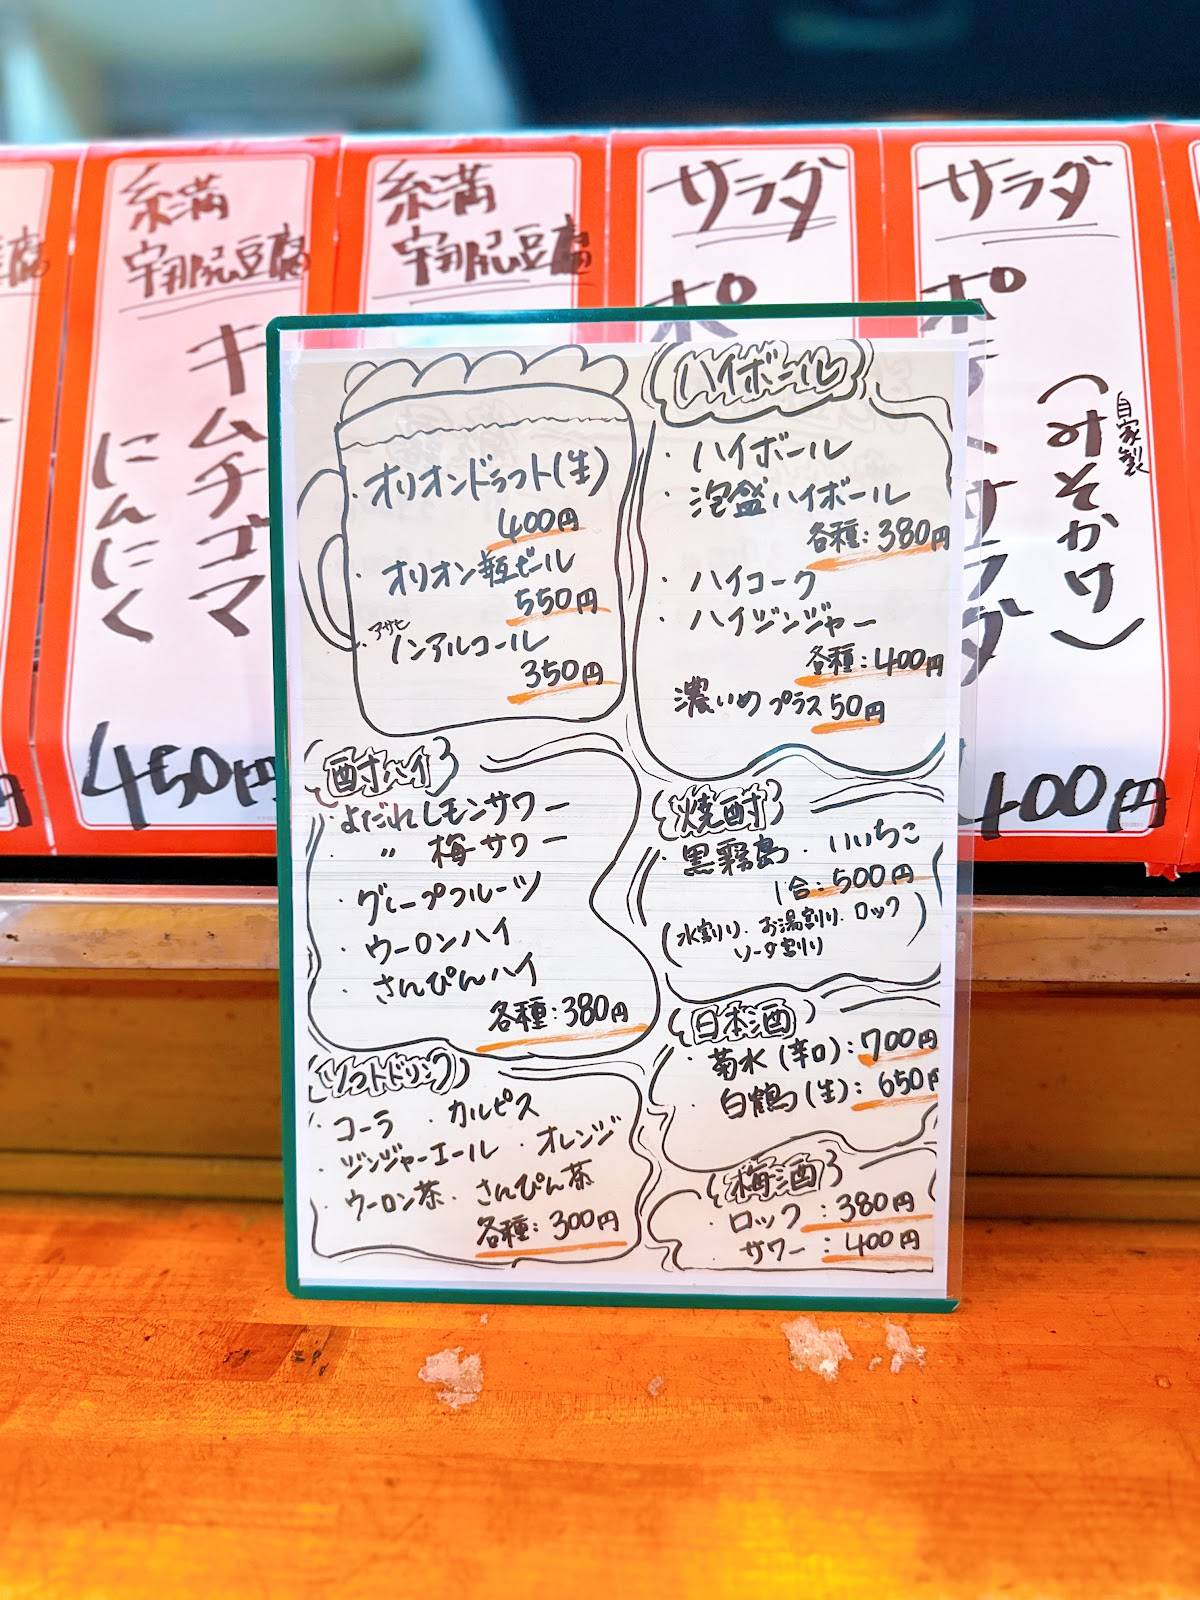 糸満
宇那尻豆腐
キムチゴマ
にんにく
450円
糸満
宇那尻豆腐
サラダ
ポ
サラダ
(みそかけ)
自家製
400円
・オリオンドラフト(生)
400円
・オリオン瓶ビール
550円
アサヒ
・ノンアルコール
350円
酎ハイ
・よだれレモンサワー
・ 〃 梅サワー
・グレープフルーツ
・ウーロンハイ
・さんぴんハイ
各種:380円
ソフトドリンク
・コーラ ・カルピス
・ジンジャーエール ・オレンジ
・ウーロン茶・さんぴん茶
各種:300円
ハイボール
・ハイボール
・泡盛ハイボール
各種:380円
・ハイコーク
・ハイジンジャー
各種:400円
濃いめプラス50円
焼酎
・黒霧島・いいちこ
1合:500円
(水割り・お湯割り・ロック
ソーダ割り)
日本酒
・菊水(辛口):700円
・白鶴(生):650円
梅酒
・ロック:380円
・サワー:400円